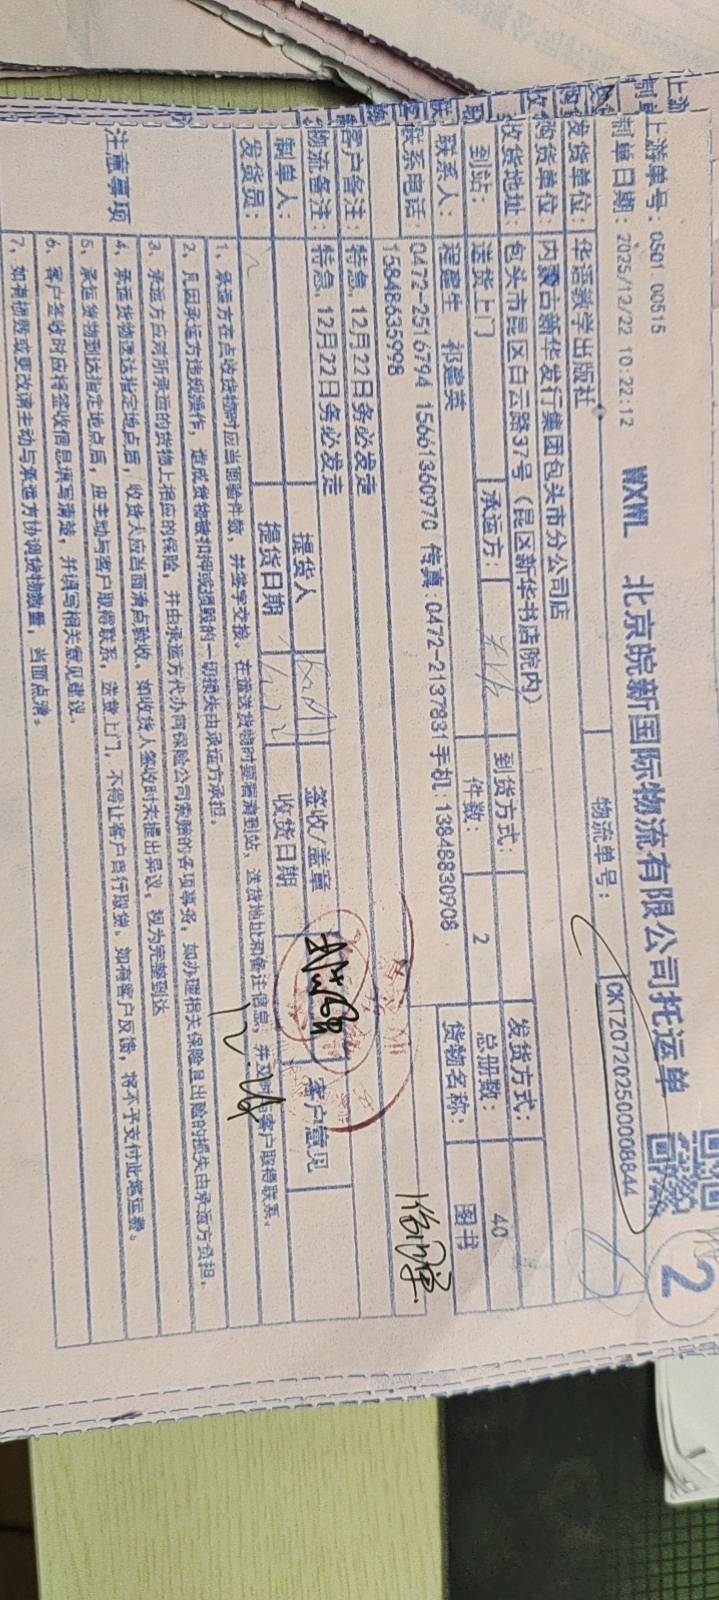 上游单号：0501 00515
WXWL 北京皖新国际物流有限公司托运单
2
制单日期：2025/12/22 10:22:12
物流单号：CKTZ0720250008844
发货单位：华语教学出版社
购货单位：内蒙古新华发行集团包头市分公司店
发货方式：
收货地址：包头市昆区白云路37号（昆区新华书店院内）
到货方式：
总册数：40
到站：送货上门
承运方：
件数：2
货物名称：图书
联系人：程建生 祁建英
联系电话：0472-2516794 15661360970 传真：0472-2137831 手机：13848830908
15848635998
客户备注：特急，12月22日务必发走
物流备注：特急，12月22日务必发走
制单人：
提货人
签收/盖章
客户意见
发货员：
提货日期
收货日期
注意事项
1、承运方在点收货物时应当面验件数，并签字交接。在运送货物时要看清到站，送货地址和备注信息，并及时与客户取得联系。
2、凡因承运方违规操作，造成货物被扣押或损毁的一切损失由承运方承担。
3、承运方应对所承运的货物上相应的保险，并由承运方代办向保险公司索赔的各项事务。如办理相关保险且出险的损失由承运方负担。
4、承运货物送达指定地点后，收货人应当面清点验收。如收货人签收时未提出异议，视为完整到达
5、承运货物到达指定地点后，应主动与客户取得联系，送货上门，不得让客户自行取货。如有客户反馈，将不予支付此笔运费。
6、客户签收时应将签收信息填写清楚，并填写相关意见建议。
7、如有损毁或更改请主动与承运方协调货物数量，当面点清。